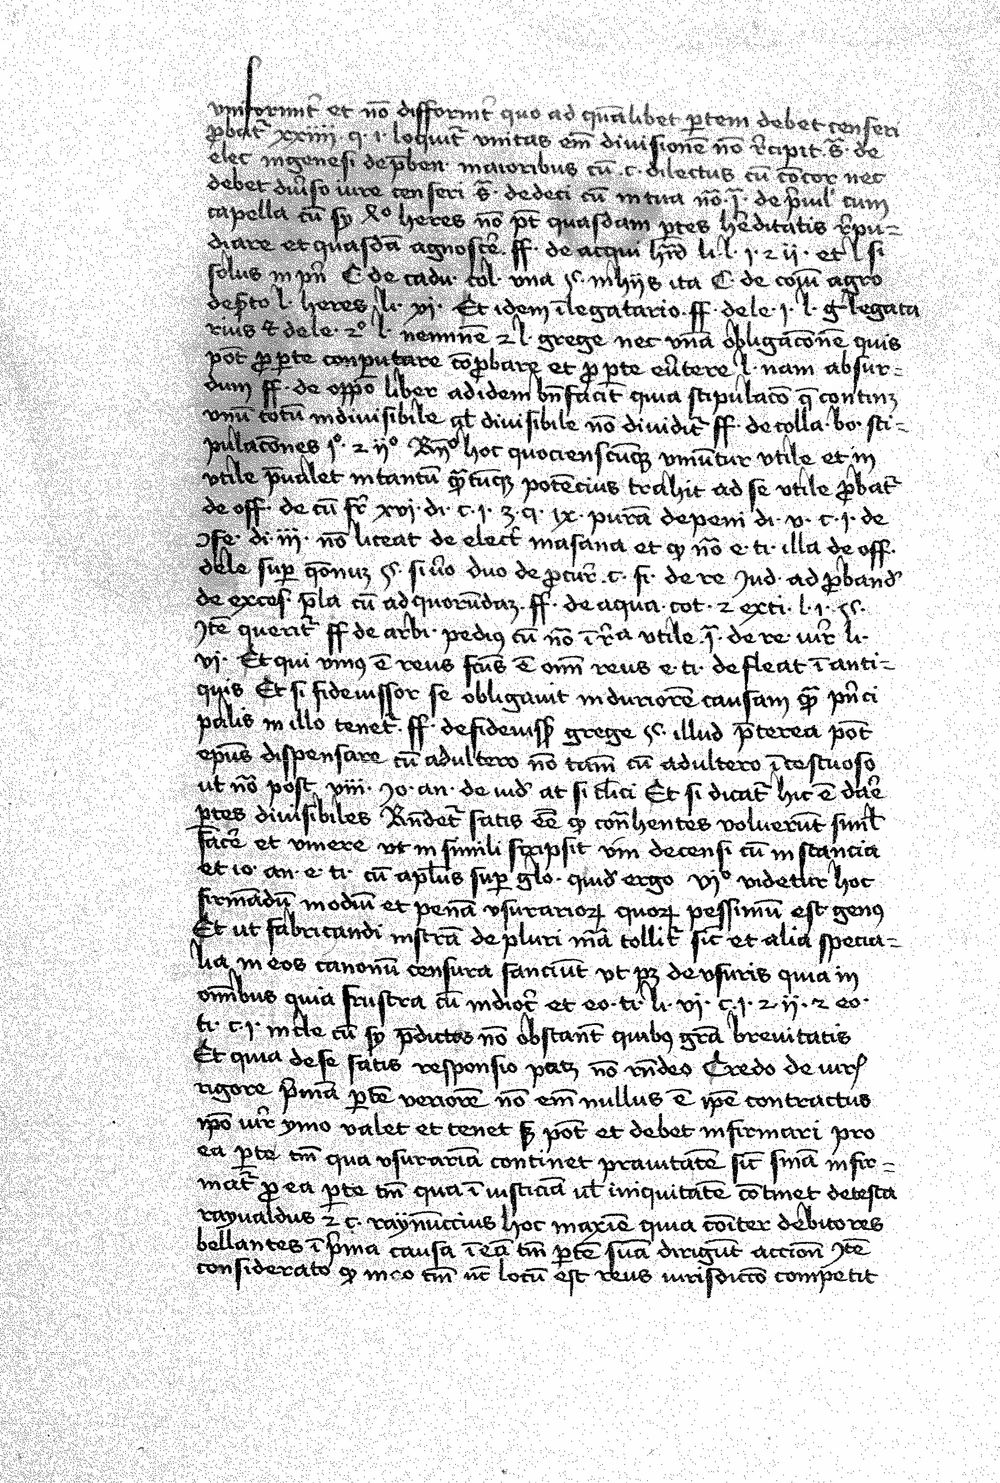 vniformit̄ et nō difformit̄ quo ad qua̅libet p̱tem debet censeri
ꝓbat̄ xxiiii · q · i · loquit̄ vnitas em̄ diuisionē nō r̄cipit · s̄ · de
elec in genesi de p̄ben · maioribus cū · c · dilectus cū co̅cor nec
debet diu̅so iure censeri s̄ · de deci cū in tua nō · j̄ · de p̄uil' cum
capella cū sy heres nō p̄t quasdam p̱tes he̅ditatis r̄pu=
diare et quasdā agnosce̅ · ff · de acqui he̅d li · l · j · ⁊ ij · et l si
solus in pn̄ C · de cadu · tol · vna § · in hijs ita C · de co̅iu̅ agro
de l · heres li · vi · Et idem ī legatario · ff · de le · j · l · legata
rius de le · 2º l · neminē ⁊ l · grege nec vnā obligac̅onē quis
pōt ꝓ p̱te conputare co̅ꝓbare et ꝓ p̱te eu̅tere l · nam absur=
dum ff · de oppo̅ liber ad idem bn̄ facit̄ quia stipulac̅o q̄ continꝫ
vnū totū indiuisibile ul̄ diuisibile nō diuidit̄ ff · de colla · bo · sti=
pulac̅ones jº · ⁊ ijº · hoc quocienscu̅qꝫ vniu̅tur vtile et in
vtile p̄ualet in tantū qua̅tūqꝫ pote̅cius trahit ad se vtile ꝓbat̄
de off · de cū fr̄ xvi · di · c · i · ꝫ · q · ix · purā de peni di · v · c · i · de
ↄse · di · iii · nō liceat de elect̄ masana et ꝙ nō e · ti · illa de off ·
dele sup̱ § · si u̅o duo de ꝓcur̄ · c · fi · de re iud · ad ꝓband̄
de exces · p̄la cū ad quoru̅daꝫ · ff · de aqua · cot · ⁊ exti · l · i · § ·
Itē querit̄ ff de arbi · pediꝰ cū nō ī r̄a vtile · j̄ · de re · iur̄ li ·
vi · Et qui vniꝰ ē reus fc̄us ē om̄ reus e · ti · de fleat ī anti=
quis Et si fideiussor se obligauit in duriorē causam qua̅ pn̄ci
palis in illo tenet̄ · ff · de fideiuss̄ grege § · illud p̄terea pōt
ep̄us dispensare cū adultero nō tam̄ cū adultero ī cestuoso
ut nō post · viii · Io · an · de iud̄ at si cl̄ici Et si dicat̄ hic ē dar̄e
p̱tes diuisibiles Rn̄det̄ satis e̅e ꝙ con̄hentes voluerūt simil̄
facer̄e et vniere vt in simili scripsit vin de censi cū instancia
et io · an · e · ti · cū apl̄us sup̱ glo · quid ergo viº videtur hoc
firmādū modiū et penā vsurarioꝝ quoꝝ pessimū est genꝰ
Et ut fabricandi in strā de pluri mā tollit̄ sic et alia specia=
lia in eos canonū censura sanciūt vt pꝫ de vsuris quia in
om̄ibus quia frustra cū indioc̄ et eo · ti · li · vi · c · i · ⁊ ij · ⁊ eo ·
ti · c · i · in cle cū sy p̄dictas nō obstant̄ quibꝰ grā breuitatis
Et quia de se satis responsio patꝫ nō rn̄deo Credo de iurꝭ
rigore p̄mā p̱tē veriorē nō em̄ nullus ē ip̄e contractus
ip̄o iur̄ ymo valet et tenet sꝫ pōt et debet infirmari pro
ea p̱te tm̄ qua vsurariā continet prauitatē sic̄ sn̄ia infir=
mat̄ ꝓ ea p̱te tm̄ qua ī iusticiā ul̄ iniquitatē co̅tinet detesta
raynaldus ⁊ c · raynūccius hoc maxīe quia co̅iter debitores
bellantes ī p̄ma causa ī eā tm̄ p̱tē suā dirigūt accion̄ Itē
considerato ꝙ in eo tm̄ uc̄ locū est reus iurisdicc̅o competit